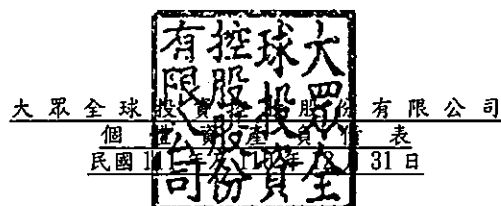 大眾全球投資控股股份有限公司
個體資產負債表
民國111年及110年12月31日
大眾全
球投資
控股股份
有限公司